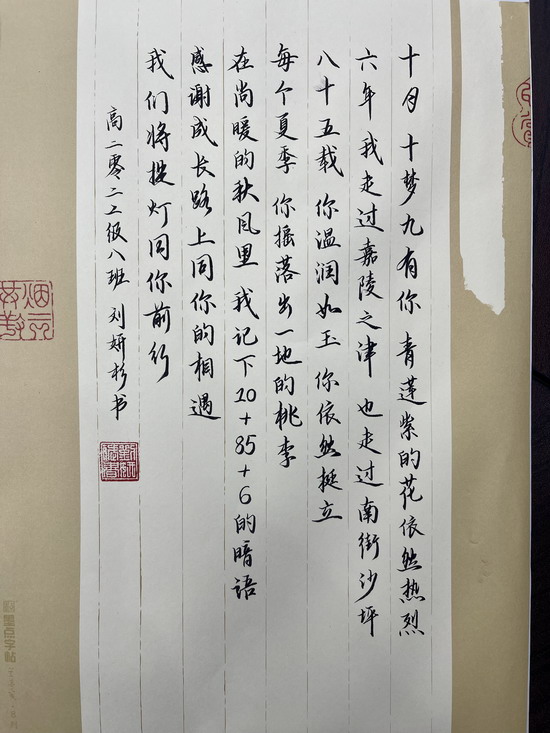 十月 十梦九有你 青莲紫的花依然热烈
六年 我走过嘉陵之津 也走过南街沙坪
八十五载 你温润如玉 你依然挺立
每个夏季 你摇落出一地的桃李
在尚暖的秋风里 我记下10+85+6的暗语
感谢成长路上同你的相遇
我们将提灯同你前行
高二零二二级八班 刘妍杉书
墨点字帖